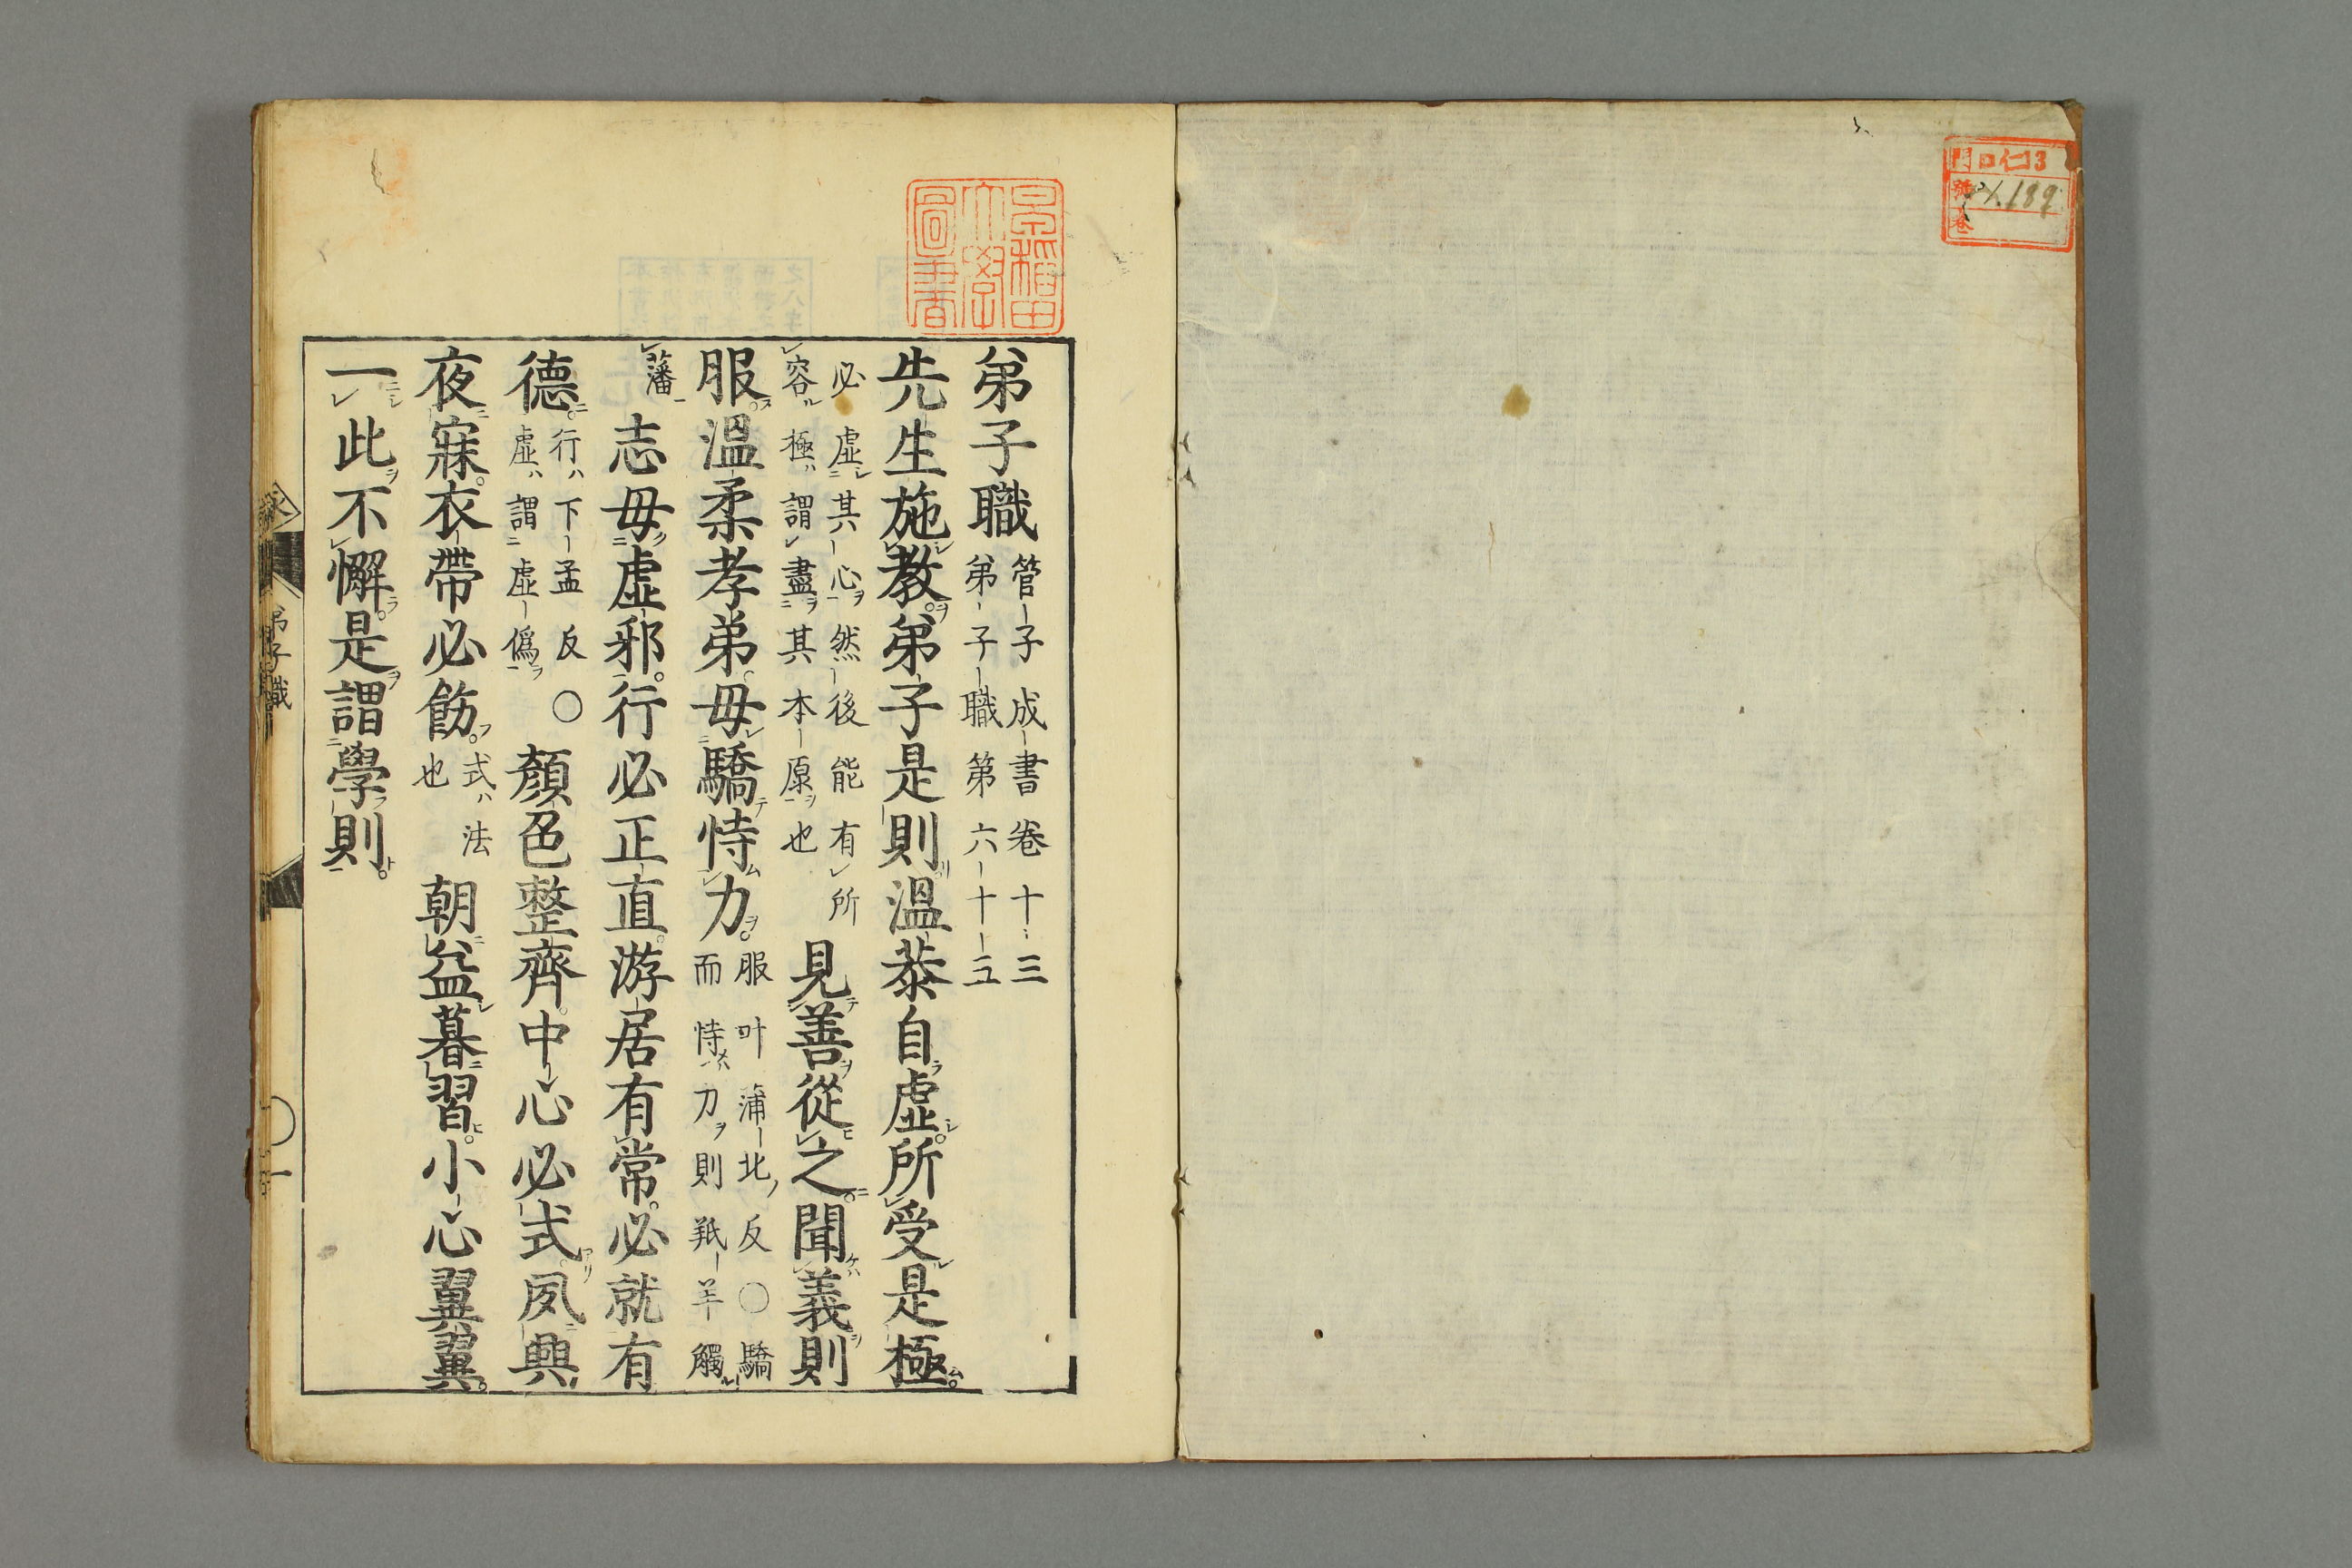 門 口仁 13
號 189
卷
早稲田
大學
圖書
弟子職 管子成書卷十三 弟子職第六十五
先生施教弟子是則溫恭自虛所受是極
必虛其心然後能有所容極謂盡其本原也 見善從之聞義則
服溫柔孝弟毋驕恃力 服叶蒲北反○驕而恃力則羝羊觸
藩 志毋虛邪行必正直游居有常必就有
德 行下孟反○虛謂虛偽 顏色整齊中心必式夙興
夜寐衣帶必飭 式法也 朝益暮習小心翼翼
一此不懈是謂學則
弟子職
一